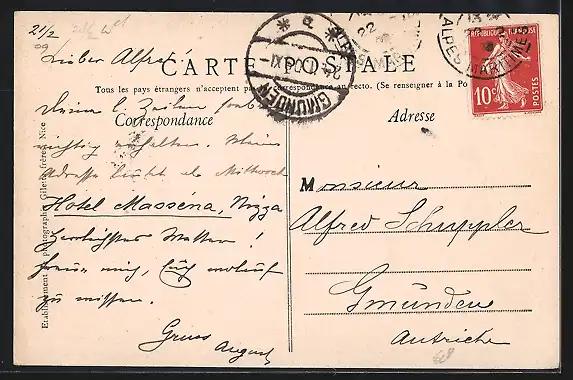 21/2
09
Lieber Alfred!
CARTE POSTALE
Tous les pays étrangers n'acceptent pas correspondance au recto. (Se renseigner à la Po
Correspondance
Adresse
Deine l. Zeilen
richtig erhalten. Meine
Adresse bleibt ab Mittwoch
Hotel Masséna, Nizza
Herrlichstes Wetter!
freue mich, Euch wohlauf
zu wissen.
Gruss
August
Monsieur
Alfred Schuppler
Gmunden
Autriche
Etablissement de photographie Giletta frères, Nice
GMUNDEN
ALPES MARITIMES
RÉPUBLIQUE FRANÇAISE
10c
POSTES